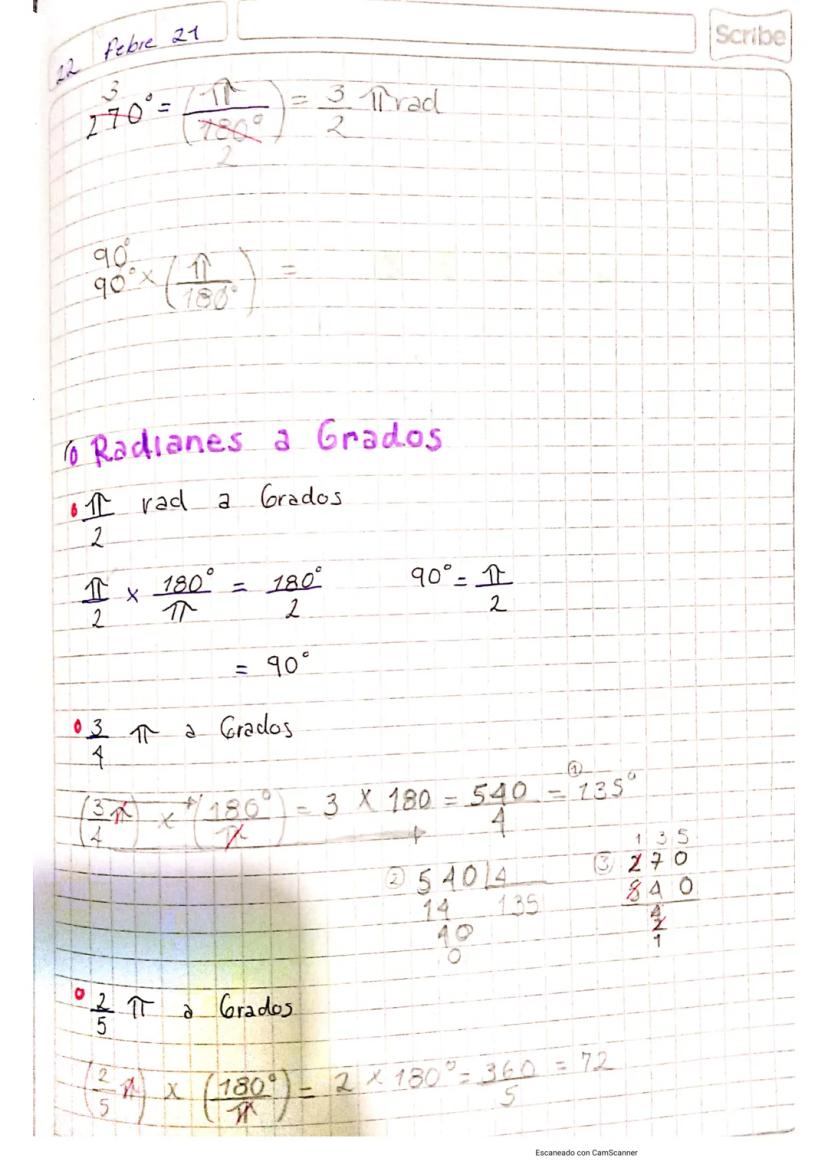 22 Febre 21
Scribe
3
270° = (π / 180°) = 3/2 π rad
2
90°
90° × (π / 180°) =
Radianes a Grados
π/2 rad a Grados
π/2 × 180°/π = 180°/2    90° = π/2
= 90°
3/4 π a Grados
(3/4 π) × (180°/π) = 3 × 180 = 540/4 = ① 135°
② 540 |4
14 135
40
0
1 3 5
③ 2 7 0
8 4 0
4
2
1
2/5 π a Grados
(2/5 π) × (180°/π) = 2 × 180° = 360/5 = 72
Escaneado con CamScanner